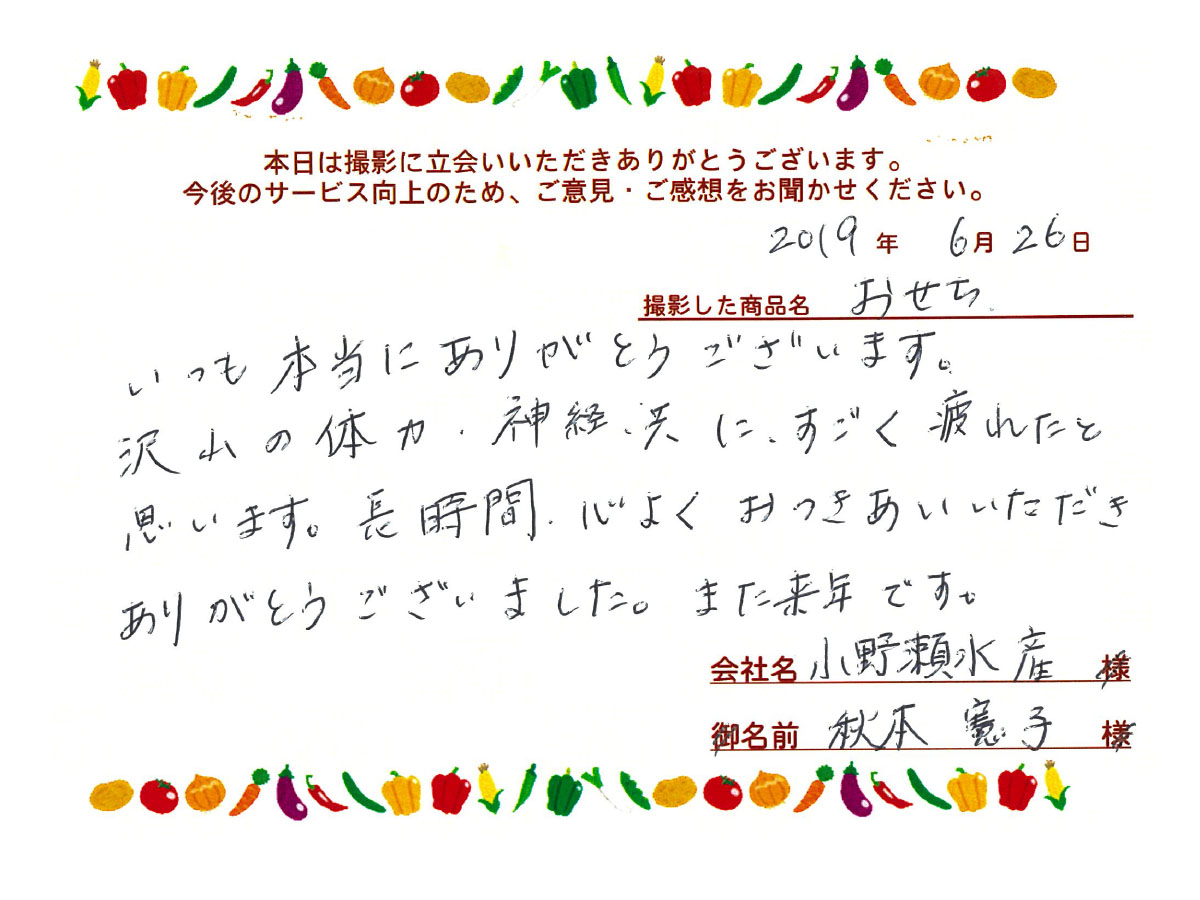 本日は撮影に立会いいただきありがとうございます。
今後のサービス向上のため、ご意見・ご感想をお聞かせください。
2019年 6月26日
撮影した商品名 おせち
いつも本当にありがとうございます。
沢山の体力、神経、共に、すごく疲れたと
思います。長時間、心よくおつきあいいただき
ありがとうございました。また来年です。
会社名 小野瀬水産 様
御名前 秋本 寛子 様